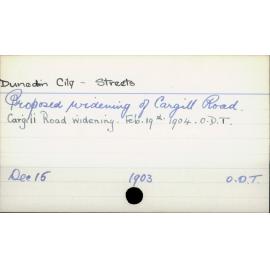 Dunedin City - Streets
Proposed widening of Cargill Road.
Cargill Road widening. Feb. 19th. 1904. O.D.T.
Dec 15 1903 O.D.T.